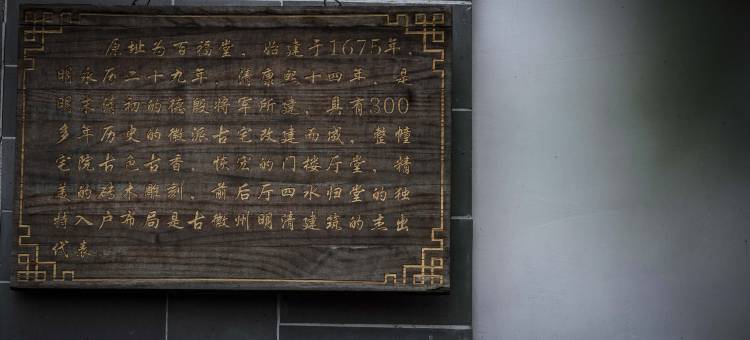 原址为百福堂，始建于1675年，
明永历二十九年，清康熙十四年，是
明末清初的德毅将军所建，具有300
多年历史的徽派古宅改建而成，整幢
宅院古色古香，恢宏的门楼厅堂，精
美的砖木雕刻，前后厅四水归堂的独
特入户布局是古徽州明清建筑的杰出
代表